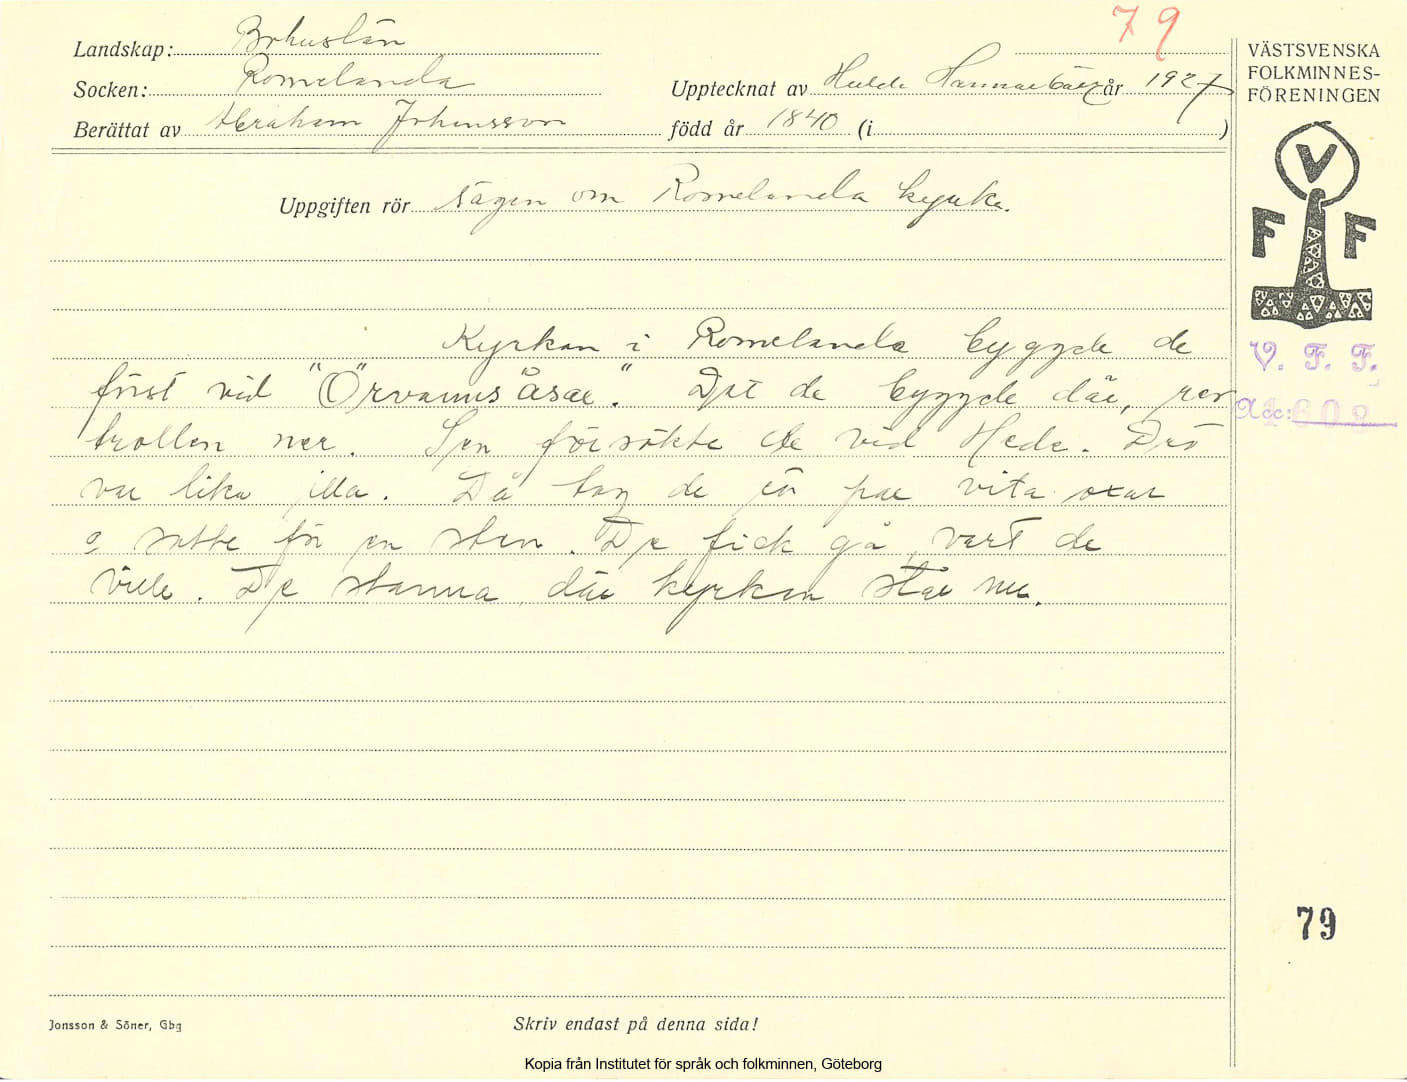 79
Landskap: Bohuslän
Socken: Romelanda
Upptecknat av Hulda Hammarbäck år 1927
Berättat av Abraham Johansson
född år 1840 (i )
VÄSTSVENSKA
FOLKMINNES-
FÖRENINGEN
V
F F
V. F. F.
Acc:
Uppgiften rör sägen om Romelanda kyrka.
Kyrkan i Romelanda byggde de
först vid "Örvamsåsar". Det de byggde där, rev
trollen ner. Sen försökte de vid Hede. Dä
var lika illa. Då tog de ett par vita oxar
o satte för en sten. De fick gå, vart de
ville. De stanna, där kyrkan står nu.
79
Jonsson & Söner, Gbg
Skriv endast på denna sida!
Kopia från Institutet för språk och folkminnen, Göteborg